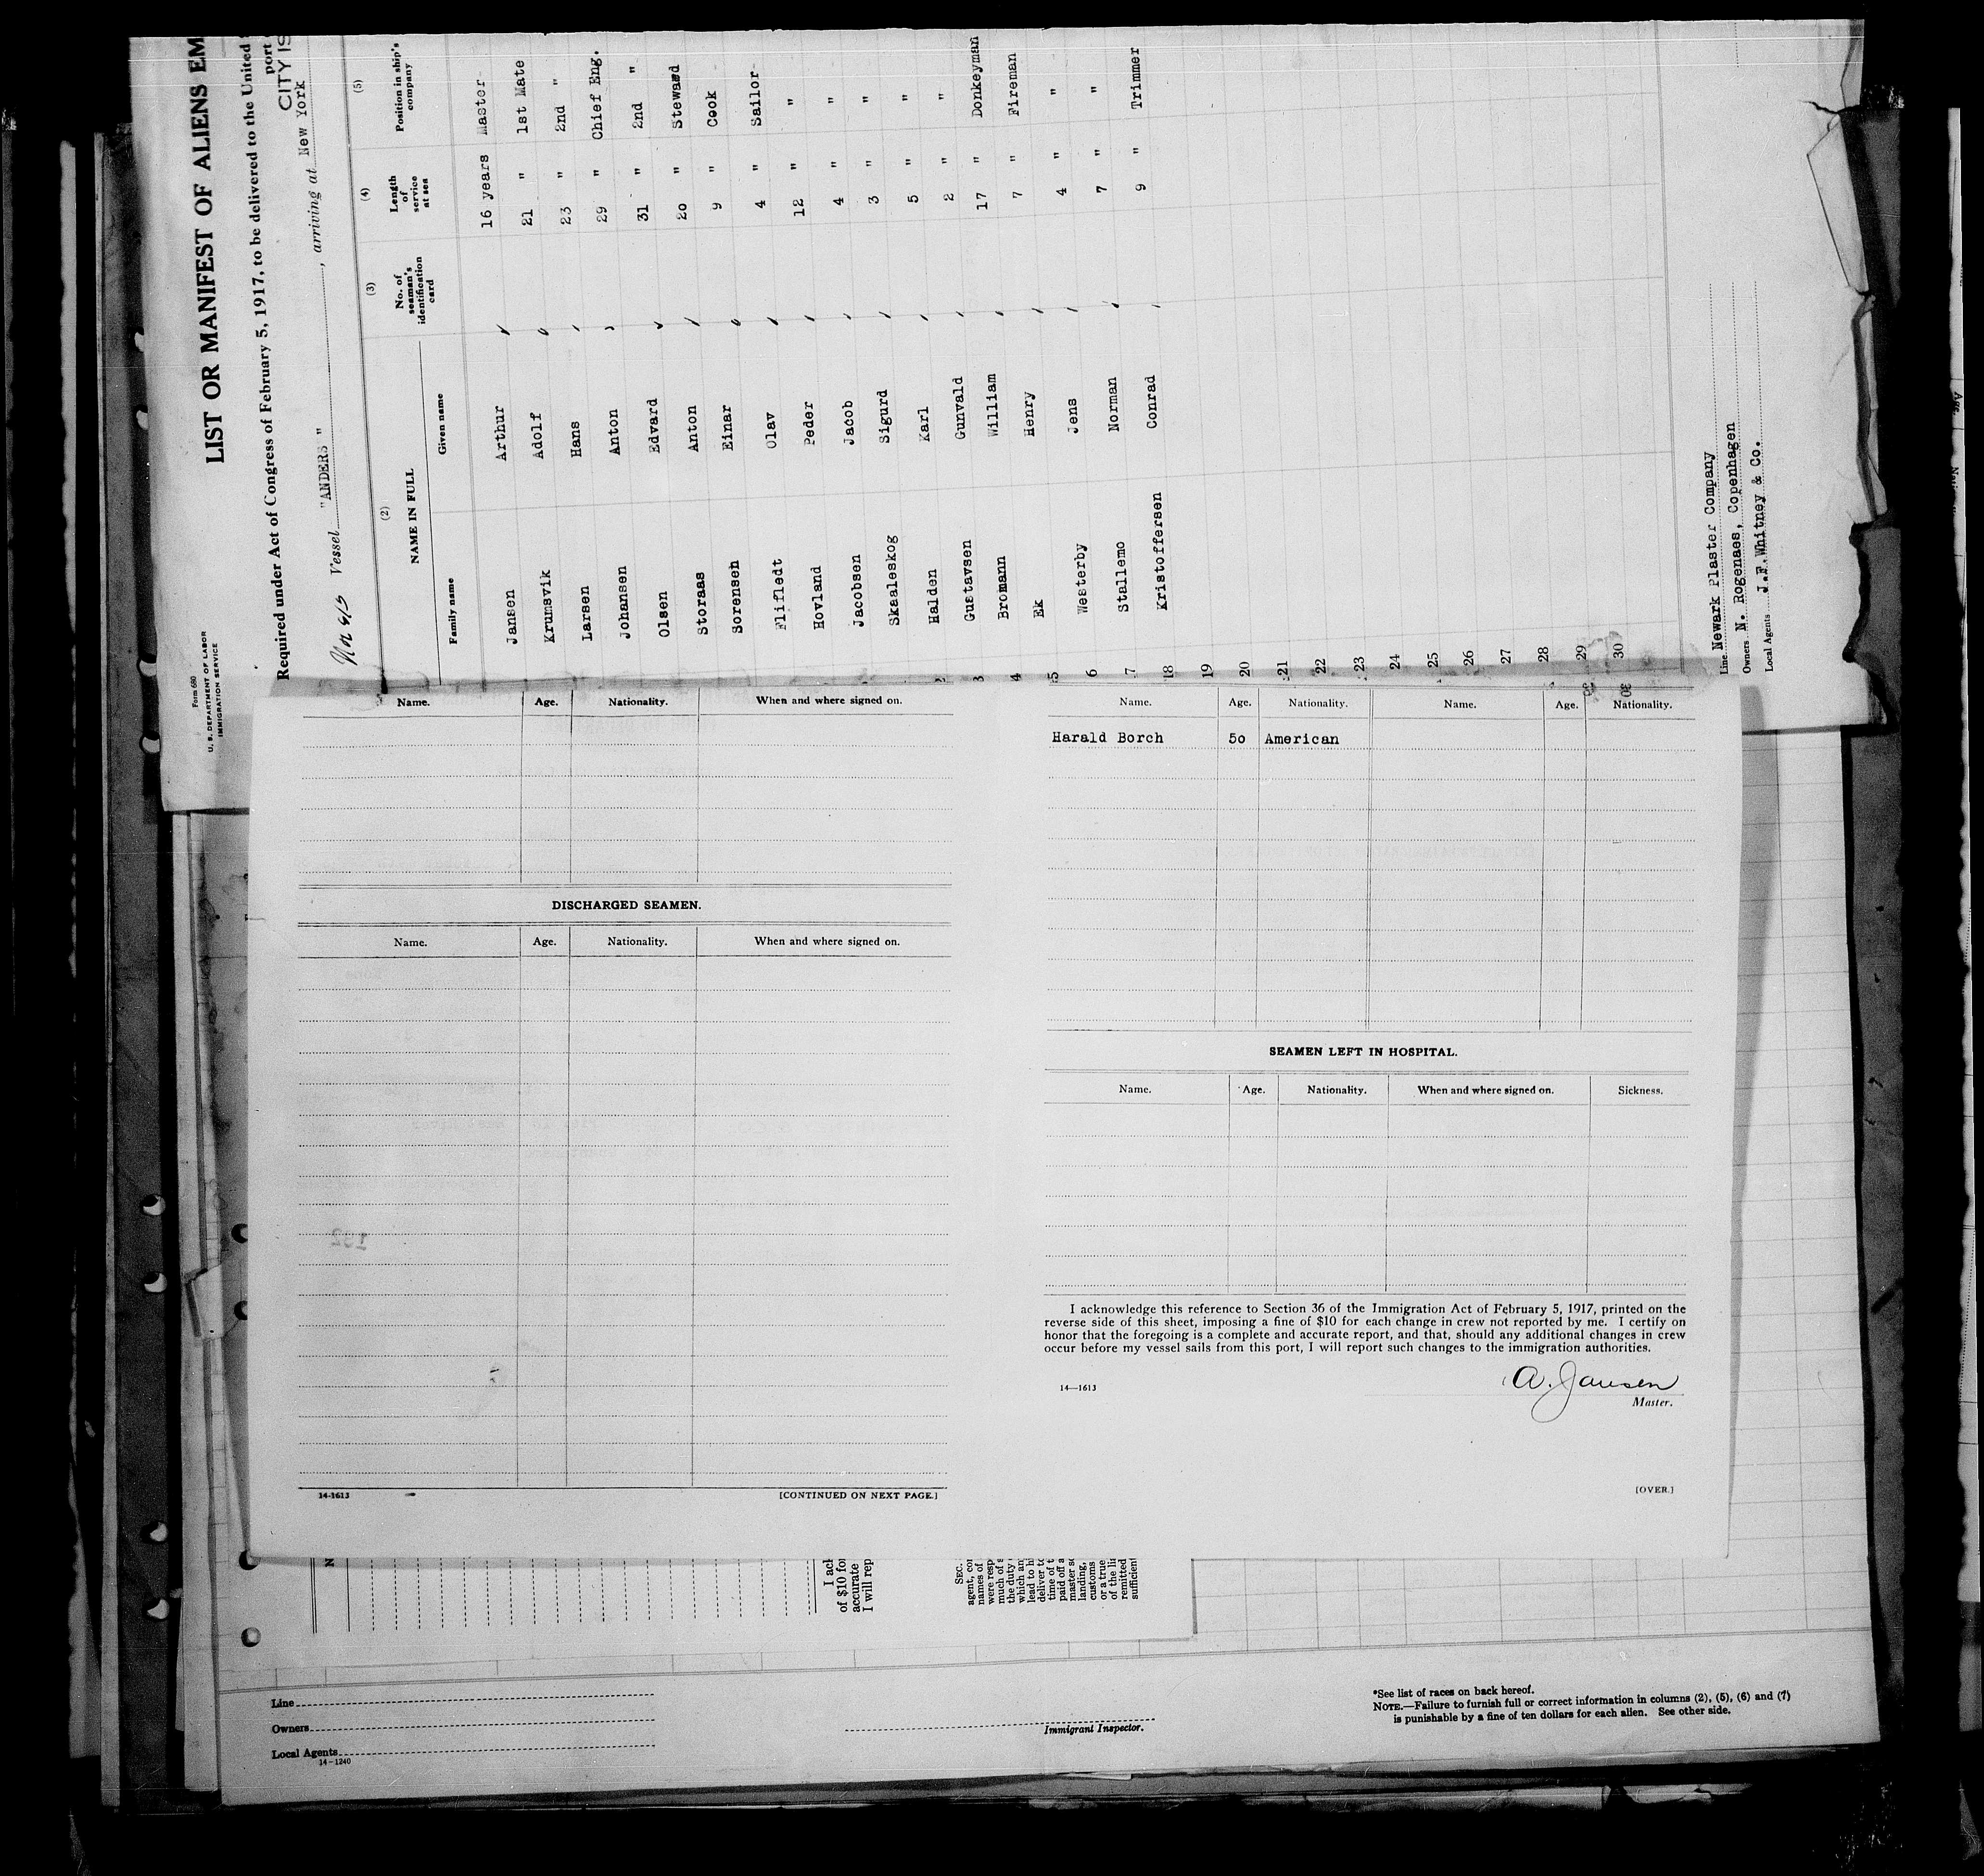 Form 680
U. S. DEPARTMENT OF LABOR
IMMIGRATION SERVICE
LIST OR MANIFEST OF ALIENS EM
Required under Act of Congress of February 5, 1917, to be delivered to the United
port
CITY IS
Vessel "ANDERS", arriving at New York
(2) (3) (4) (5)
NAME IN FULL
Family name Given name
No. of seaman's identification card
Length of service at sea
Position in ship's company
Jansen Arthur 16 years Master
Krumsvik Adolf 21 " 1st Mate
Larsen Hans 23 " 2nd "
Johansen Anton 29 " Chief Eng.
Olsen Edvard 31 " 2nd "
Storaas Anton 20 " Steward
Sorensen Einar 9 " Cook
Flifledt Olav 4 " Sailor
Hovland Peder 12 " "
Jacobsen Jacob 4 " "
Skaaleskog Sigurd 3 " "
Halden Karl 5 " "
Gustavsen Gunvald 2 " "
Bromann William 17 " Donkeyman
Ek Henry 7 " Fireman
Westerby Jens 4 " "
Stallemo Norman 7 " "
Kristoffersen Conrad 9 " Trimmer
4
5
6
7
18
19
20
21
22
23
24
25
26
27
28
29
30
Line Newark Plaster Company
Owners N. Rogenaes, Copenhagen
Local Agents J.F.Whitney & Co.
Name. Age. Nationality. When and where signed on.
DISCHARGED SEAMEN.
Name. Age. Nationality. When and where signed on.
14-1613
[CONTINUED ON NEXT PAGE.]
Name. Age. Nationality. Name. Age. Nationality.
Harald Borch 50 American
SEAMEN LEFT IN HOSPITAL.
Name. Age. Nationality. When and where signed on. Sickness.
I acknowledge this reference to Section 36 of the Immigration Act of February 5, 1917, printed on the
reverse side of this sheet, imposing a fine of $10 for each change in crew not reported by me. I certify on
honor that the foregoing is a complete and accurate report, and that, should any additional changes in crew
occur before my vessel sails from this port, I will report such changes to the immigration authorities.
A. Jansen
14—1613
Master.
[OVER.]
I ack
of $10 for
accurate
I will rep
SEC.
agent, con
names of
were resp
much of s
the duty
which an
lead to h
deliver to
time of t
paid off a
master s
landing,
customs
or a true
of the li
remitted
sufficient
Line
Owners
Local Agents
14-1240
Immigrant Inspector.
*See list of races on back hereof.
NOTE.—Failure to furnish full or correct information in columns (2), (5), (6) and (7)
is punishable by a fine of ten dollars for each alien. See other side.